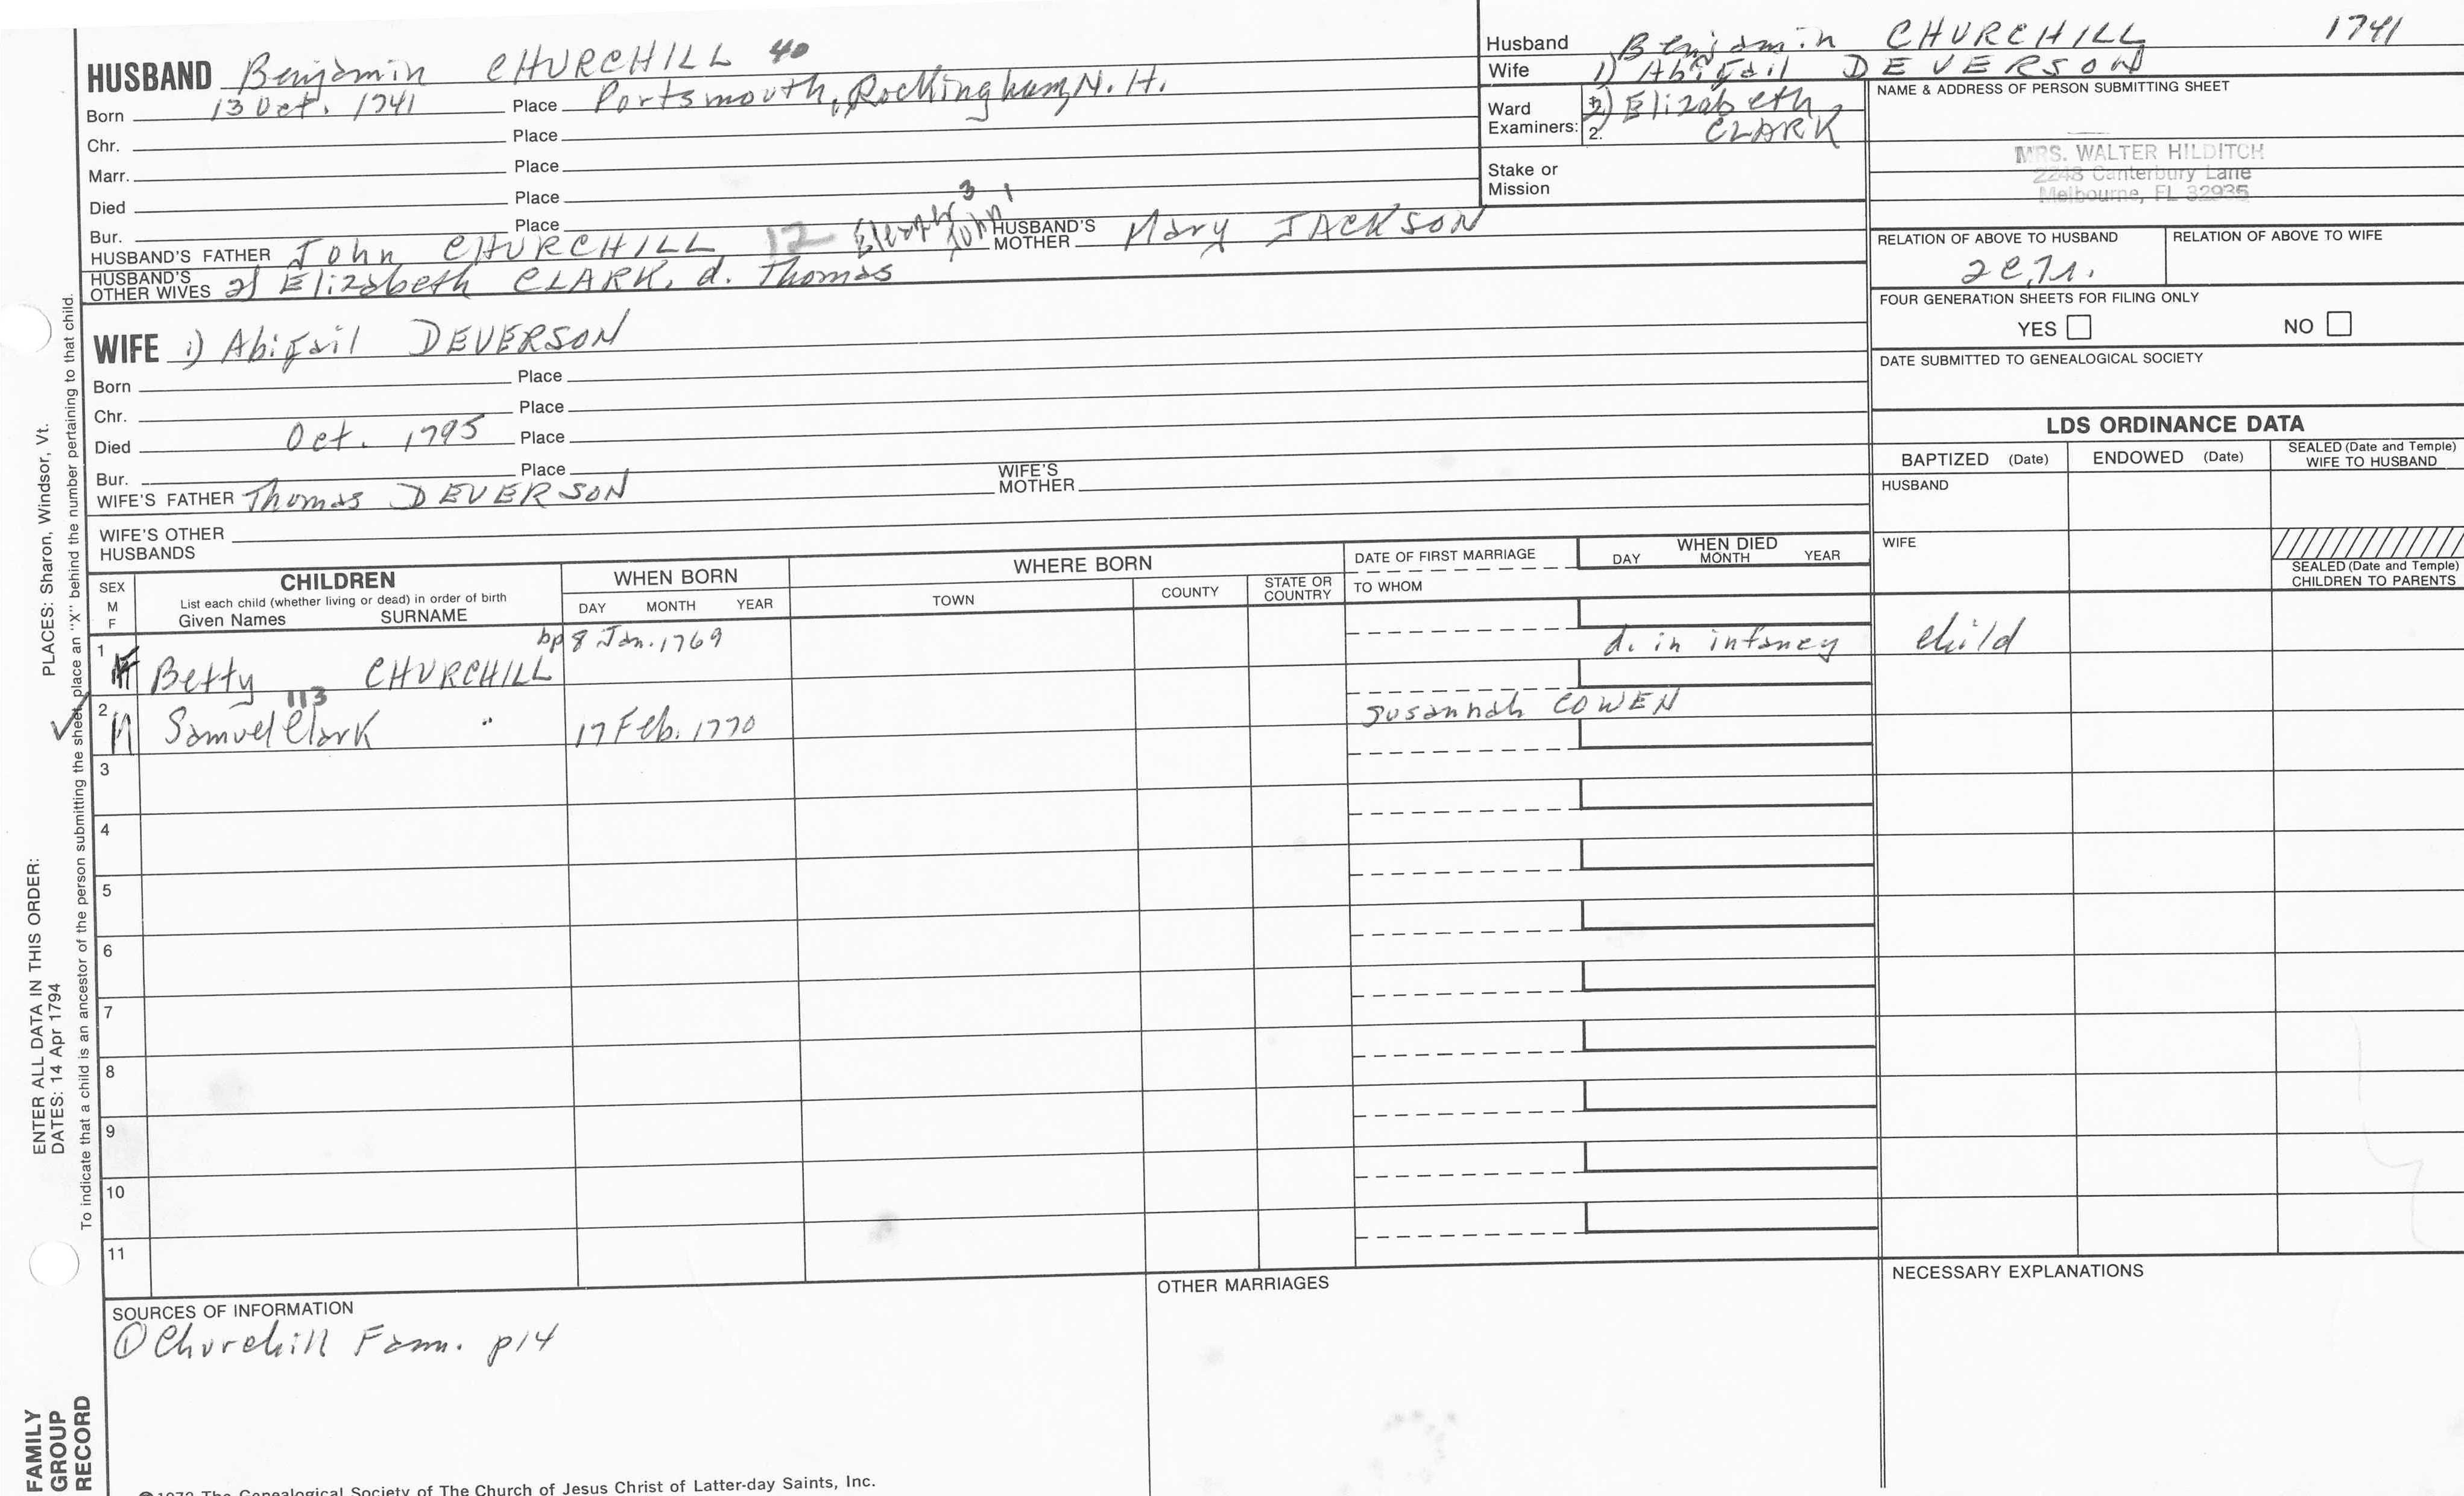 HUSBAND Benjamin CHURCHILL 40
Born 13 Oct. 1741 Place Portsmouth, Rockingham, N. H.
Chr. Place
Marr. Place
Died Place
Bur. Place
HUSBAND'S FATHER John CHURCHILL 12 Eleazer 3 John 1 HUSBAND'S MOTHER Mary JACKSON
HUSBAND'S OTHER WIVES 2) Elizabeth CLARK, d. Thomas
WIFE 1) Abigail DEVERSON
Born Place
Chr. Place
Died Oct. 1795 Place
Bur. Place
WIFE'S FATHER Thomas DEVERSON WIFE'S MOTHER
WIFE'S OTHER HUSBANDS
Husband Benjamin CHURCHILL 1741
Wife 1) Abigail DEVERSON
Ward Examiners: 2) Elizabeth
2. CLARK
Stake or Mission
NAME & ADDRESS OF PERSON SUBMITTING SHEET
MRS. WALTER HILDITCH
2248 Canterbury Lane
Melbourne, FL 32935
RELATION OF ABOVE TO HUSBAND RELATION OF ABOVE TO WIFE
FOUR GENERATION SHEETS FOR FILING ONLY
YES NO
DATE SUBMITTED TO GENEALOGICAL SOCIETY
LDS ORDINANCE DATA
BAPTIZED (Date) ENDOWED (Date) SEALED (Date and Temple) WIFE TO HUSBAND
HUSBAND
WIFE
SEALED (Date and Temple) CHILDREN TO PARENTS
SEX M F CHILDREN List each child (whether living or dead) in order of birth Given Names SURNAME
WHEN BORN DAY MONTH YEAR
WHERE BORN TOWN COUNTY STATE OR COUNTRY
DATE OF FIRST MARRIAGE TO WHOM
WHEN DIED DAY MONTH YEAR
1 F Betty CHURCHILL bp 8 Jan. 1769 d. in infancy child
2 M Samuel Clark 113 " 17 Feb. 1770 Susannah COWEN
3
4
5
6
7
8
9
10
11
SOURCES OF INFORMATION
① Churchill Fam. p14
OTHER MARRIAGES
NECESSARY EXPLANATIONS
The Genealogical Society of The Church of Jesus Christ of Latter-day Saints, Inc.
PLACES: Sharon, Windsor, Vt.
ENTER ALL DATA IN THIS ORDER:
DATES: 14 Apr 1794
To indicate that a child is an ancestor of the person submitting the sheet, place an "X" behind the number pertaining to that child.
FAMILY
GROUP
RECORD